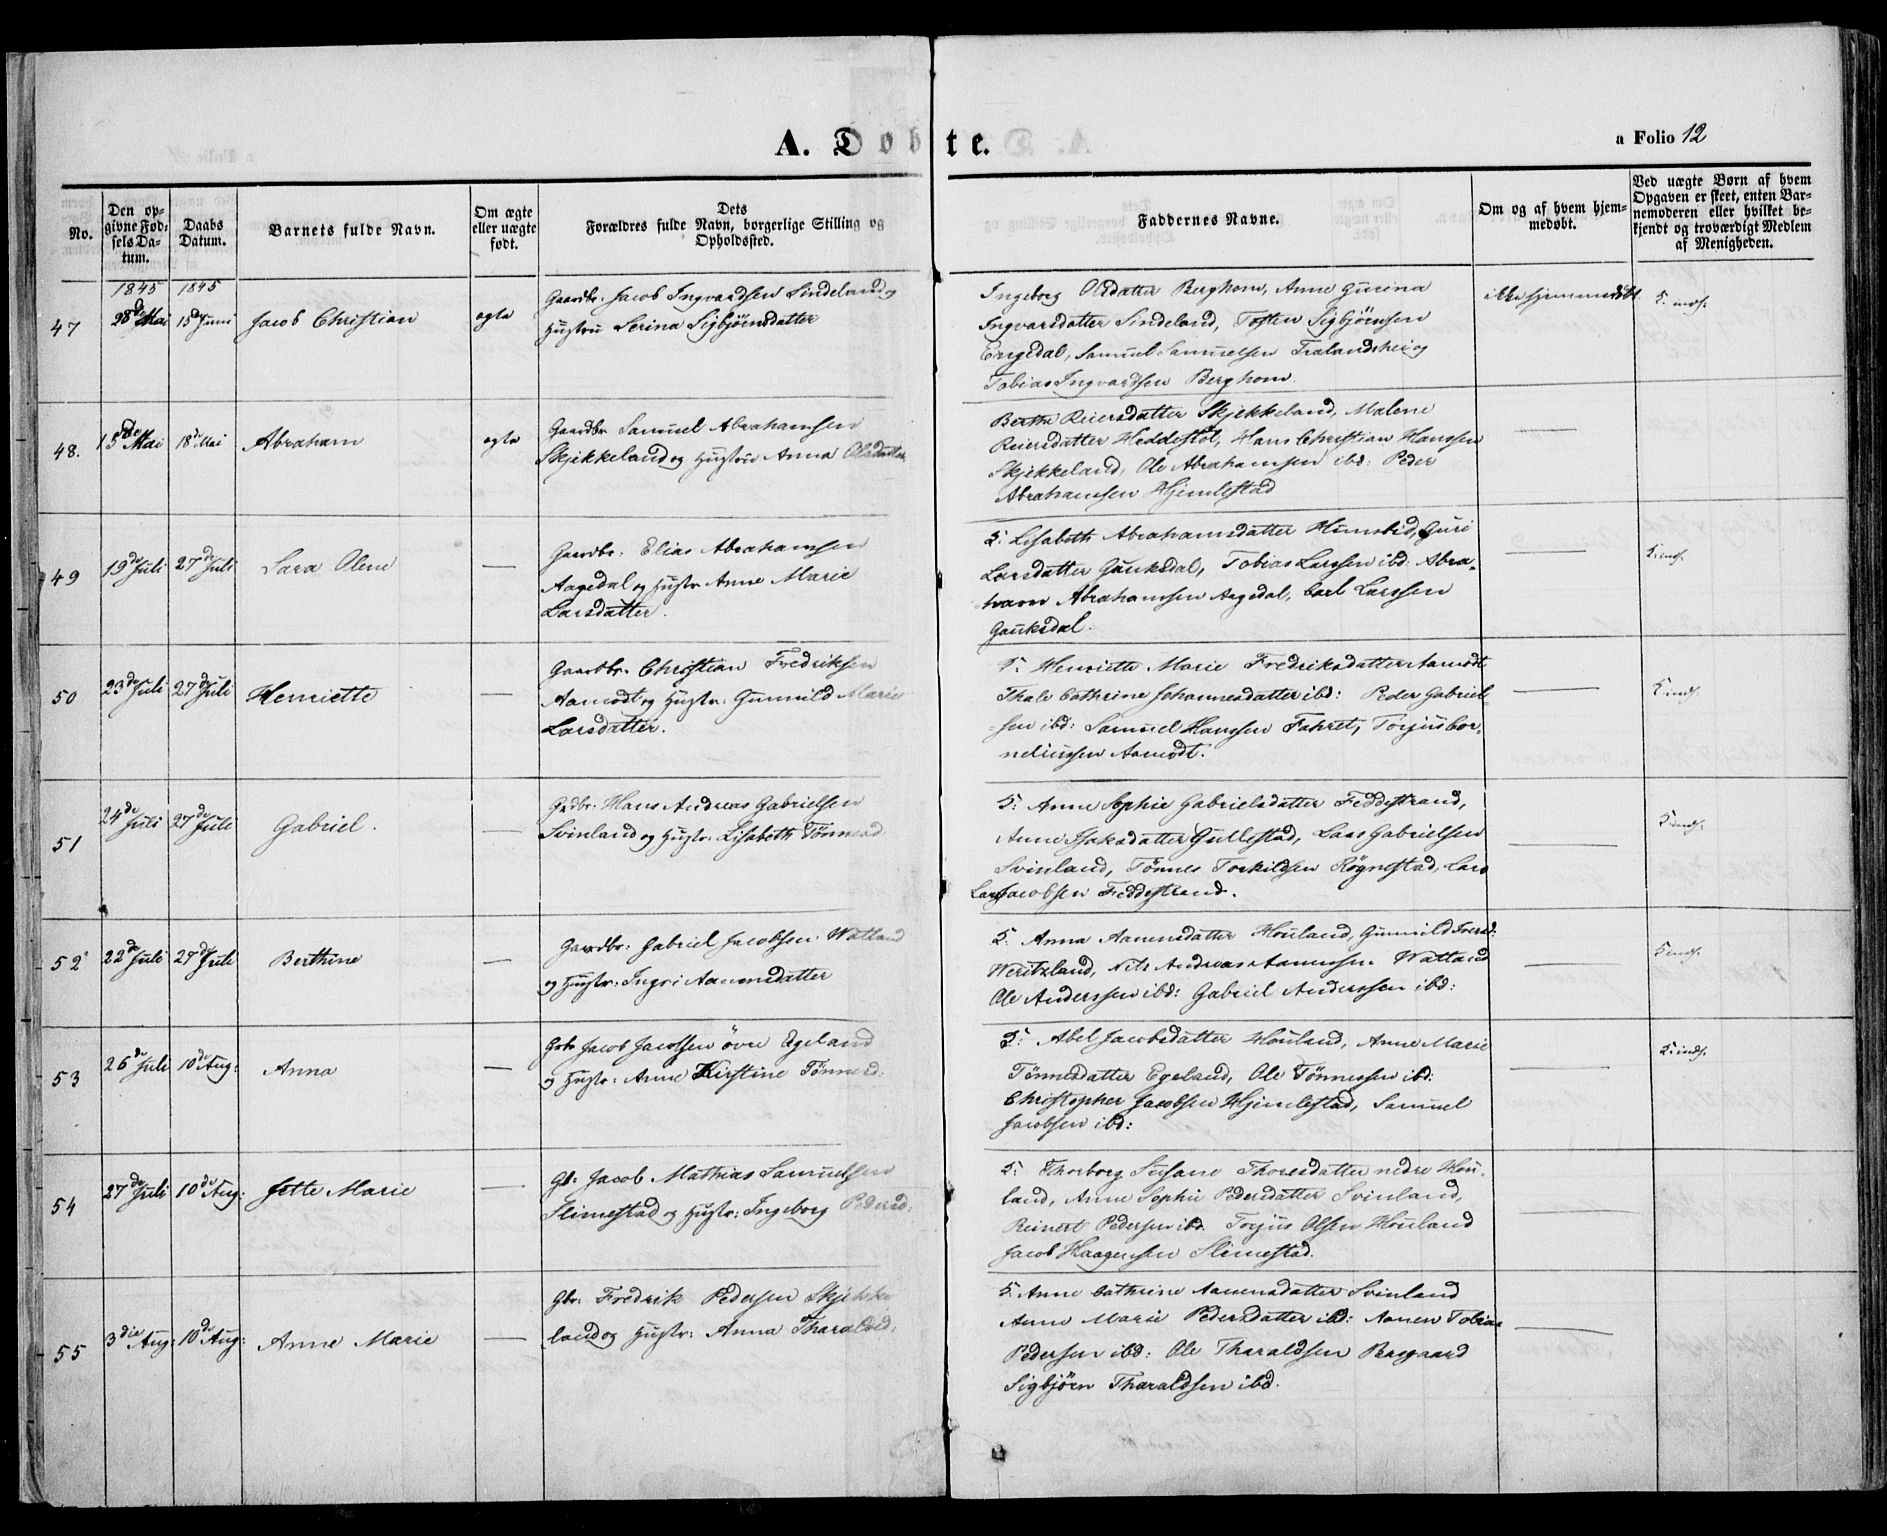 A. Døbte.
a Folio 12
No.
Den op-
givne Fød-
sels Da-
tum.
Daabs
Datum.
Barnets fulde Navn.
Om ægte
eller uægte
født.
Dets
Forældres fulde Navn, borgerlige Stilling og
Opholdssted.
Faddernes Navne.
Om og af hvem hjem-
medøbt.
Ved uægte Børn af hvem
Opgaven er skeet, enten Bar-
nemoderen eller hvilket be-
kjendt og troværdigt Medlem
af Menigheden.
1845 1845
47 28de Mai 15de Juni Jacob Christian ægte
Gaardbr. Jacob Ingvardsen Sindeland og
Hustru Serina Sigbjørnsdatter
Ingeborg Olsdatter Berghom, Anne Gurina
Ingvarsdatter Sindeland, Tosten Sigbjørnsen
Engedal, Samuel Samuelsen Trælandshei og
Tobias Ingvardsen Berghom.
ikke hjemmedøbt
48. 15de Mai 18de Mai Abraham ægte
Gaardbr Samuel Abrahamsen
Skjekkeland og Hustru Anna Olsdatter
Berthe Reiersdatter Skjekkeland, Malene
Reiersdatter Heddestøl, Hans Christian Hanssen
Skjekkeland, Ole Abrahamsen ibd: Peder
Abrahamsen Hjemlestad
49 19de Juli 27de Juli Sara Olene —
Gaardbr: Elias Abrahamsen
Aagedal og Hustr: Anne Marie
Larsdatter.
Lisabeth Abrahamsdatter Guri
Larsdatter Gauksdal, Tobias Larssen ibd: Abra-
ham Abrahamsen Aagedal, Carl Larssen
Gauksdal.
50 23de Juli 27de Juli Henriette —
Gaardbr. Christian Fredriksen
Aamodt og Hustr: Gunnild Marie
Larsdatter.
Henriette Marie Fredriksdatter Aamodt
Thale Cathrine Johannesdatter ibd: Peder Gabriel-
sen ibd: Samuel Hanssen Fahret, Torjus Cor-
neliussen Aamodt.
51 24de Juli 27de Juli Gabriel. —
Gdbr. Hans Andreas Gabrielsen
Svinland og Hustr: Lisabeth Tønnesd.
Anne Sophie Gabrielsdatter Feddestrand,
Anne Isaksdatter Gullestad, Lars Gabrielsen
Svinland, Tønnes Torkildsen Røgnestad, Lars
Jacobsen Feddestrand.
52 22de Juli 27de Juli Berthine —
Gaardbr: Gabriel Jacobsen Watland
og Hustr: Ingri Aanensdatter
Anna Aanensdatter Houland, Gunnild
Nils Andreas Aanensen Watland
Ole Anderssen ibd: Gabriel Anderssen ibd:
53 26de Juli 10de Aug: Anna —
Gbr Jacob Jacobsen øvre Egeland
og Hustr: Anne Kirstine Tønnesd:
Abel Jacobsdatter Houland, Anne Marie
Tønnesdatter Egeland, Ole Tønnessen ibd.
Christopher Jacobsen Hjemlestad, Samuel
Jacobsen ibd:
54 27de Juli 10de Aug: Jette Marie —
Gb: Jacob Mathias Samuelsen
Slimestad og Hustr: Ingeborg Pedersd:
Thorborg Susane Thoresdatter nedre Hou-
land, Anne Sophie Pedersdatter Svinland,
Reinert Pedersen ibd. Torjus Olsen Houland
Jacob Haagensen Slimestad.
55 3die Aug: 10de Aug: Anne Marie —
Gbr. Fredrik Pedersen Skjekke
land og Hustr: Anna Tharaldsd:
Anne Cathrine Aanensdatter Svinland
Anne Marie Pedersdatter ibd: Aanen Tobias
Pedersen ibd: Ole Tharaldsen
Sigbjørn Tharaldsen ibd.